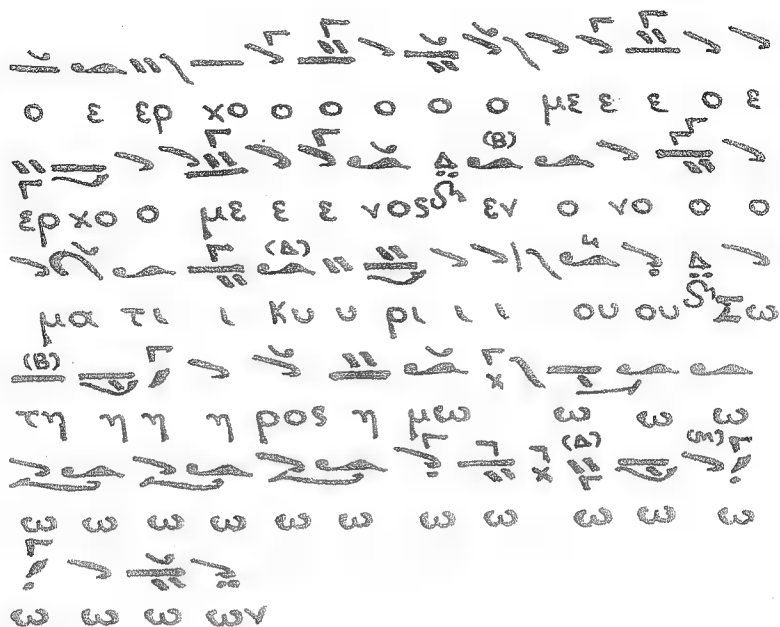 ο ε ερ χο ο ο ο ο ο με ε ε ο ε
(Β)
ερ χο ο με ε ε νος εν ο νο ο ο
(Δ)
μα τι ι Κυ υ ρι ι ι ου ου Σω
(Β)
τη η η η ρος η μω ω ω ω
(Δ) (Μ)
ω ω ω ω ω ω ω ω ω ω ω
ω ω ω ων